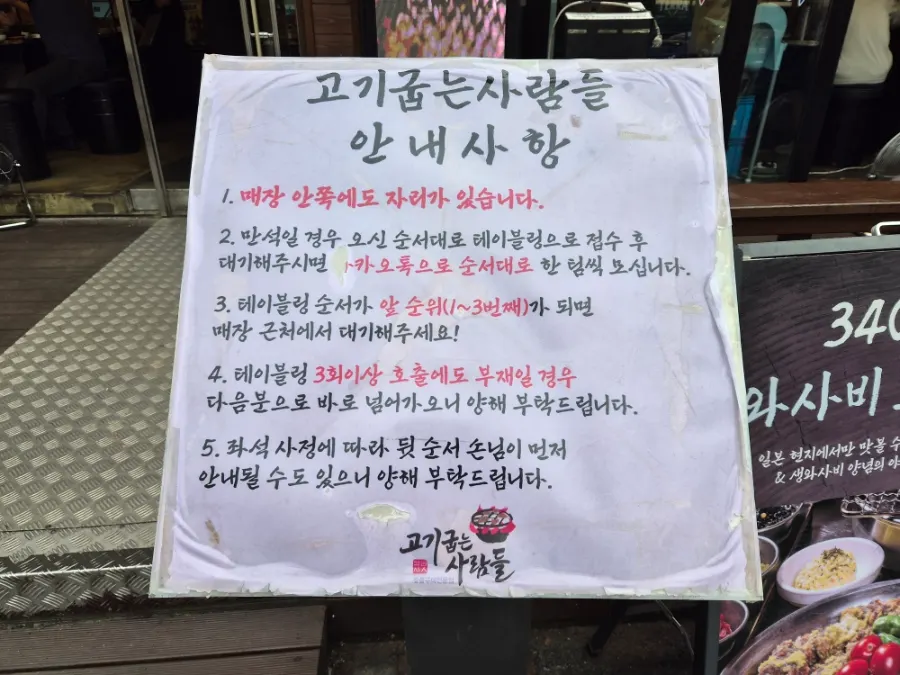 고기굽는사람들
안내사항
1. 매장 안쪽에도 자리가 있습니다.
2. 만석일 경우 오신 순서대로 테이블링으로 접수 후
대기해주시면 카오톡으로 순서대로 한 팀씩 모십니다.
3. 테이블링 순서가 앞 순위(1~3번째)가 되면
매장 근처에서 대기해주세요!
4. 테이블링 3회이상 호출에도 부재일 경우
다음분으로 바로 넘어가오니 양해 부탁드립니다.
5. 좌석 사정에 따라 뒷 순서 손님이 먼저
안내될 수도 있으니 양해 부탁드립니다.
고기굽는
사람들
340
와사비
일본 현지에서만 맛볼 수
& 생와사비 양념의